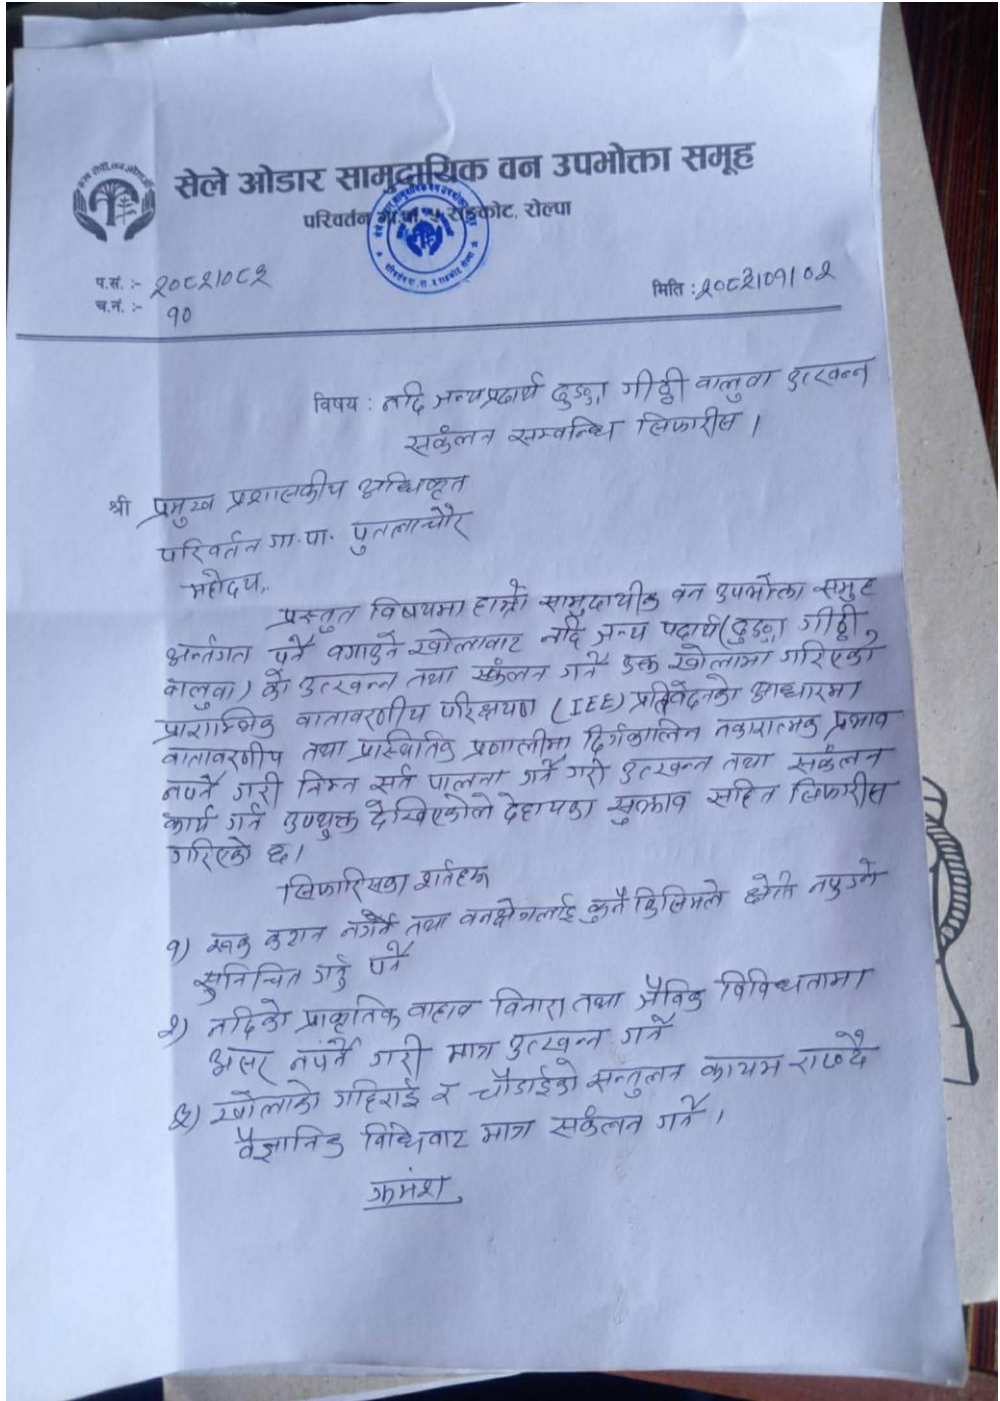 सेले ओडार सामुदायिक वन उपभोक्ता समूह
परिवर्तन गा.पा. ५ राङकोट, रोल्पा
प.सं. :- २०८२/०८३
च.नं. :- १०
मिति : २०८३/०१/०२
विषय : नदि जन्यप्रदार्थ ढुङ्गा गीठ्ठी वालुवा उत्खन्न
सकंलन सम्वन्धि सिफारीस ।
श्री प्रमुख प्रशासकीय अधिकृत
परिवर्तन गा.पा. पुतलाचौर
महोदय,
प्रस्तुत विषयमा हाम्रो सामुदायीक वन उपभोक्ता समुह
अर्न्तगत पर्ने वगाउने खोलावाट नदि जन्य पदार्थ (ढुङ्गा गीठ्ठी
वालुवा) को उत्खन्न तथा सकंलन गर्न उक्त खोलामा गरिएको
प्रारम्भिक वातावरणीय परिक्षण (IEE) प्रतिवेदनको आधारमा
वातावरणीय तथा प्रास्थितिक प्रणालीमा दिर्गकालिन नकारात्मक प्रभाव
नपर्ने गरी निम्न सर्त पालना गर्ने गरी उत्खन्न तथा सकंलन
कार्य गर्न उपयुक्त देखिएकोले देहायका सुझाव सहित सिफारीस
गरिएको छ।
सिफारिसका शर्तहरु
१) रुख कटान नगर्ने तथा वनक्षेत्रलाई कुनै किसिमले क्षेती नपुग्ने
सुनिचित गर्नु पर्ने
२) नदिको प्राकृतिक वाहाव किनारा तथा जैविक विविधतामा
असर नपर्ने गरी मात्र उत्खन्न गर्ने
३) खोलाको गहिराई र चौडाईको सन्तुलन कायम राख्दै
वैज्ञानिक विधिवाट मात्र सकंलन गर्ने ।
क्रमंश